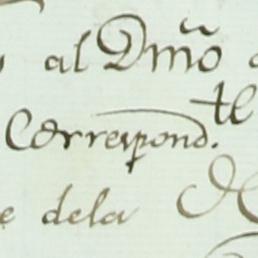 al Dmõ
Correspond.te
e dela